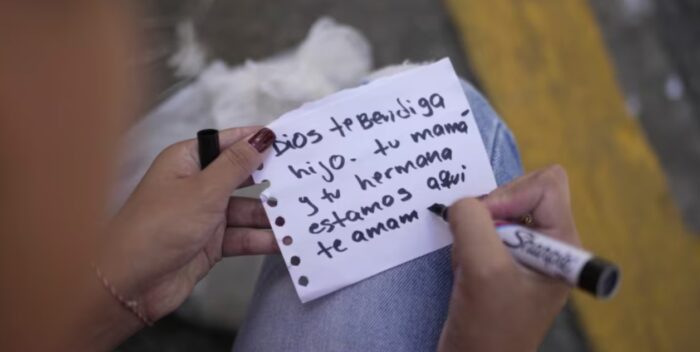 Dios te Bendiga
hijo. tu mamá
y tu hermana
estamos aqui
te amam